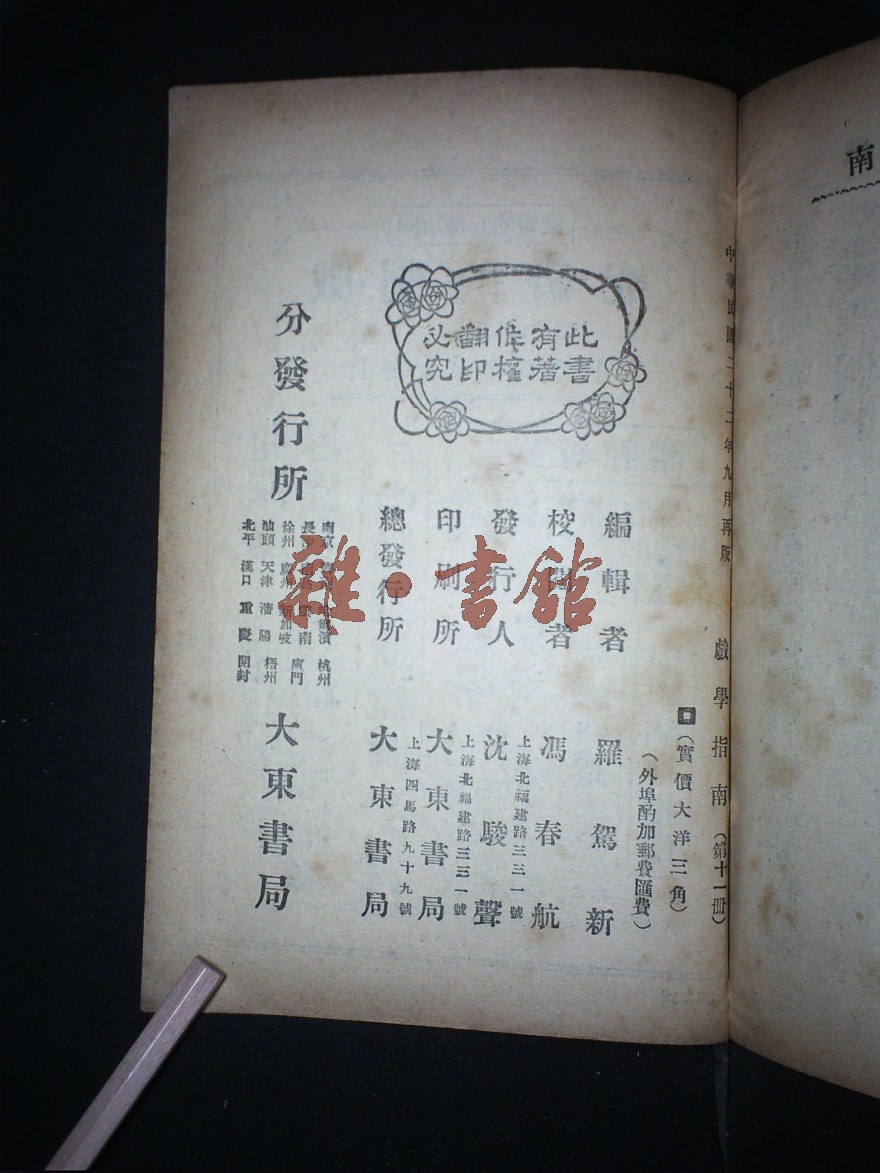 南
中華民國二十二年九月再版
戲學指南(第十一冊)
(實價大洋三角)
(外埠酌加郵費匯費)
此書
有著
作權
翻印
必究
編輯者 羅駕新
校閱者 馮春航
上海北福建路三三一號
發行人 沈駿聲
上海北福建路三三一號
印刷所 大東書局
上海四馬路九十九號
總發行所 大東書局
南京 濱 杭州
長沙 南 廈門
徐州 廣州 新加坡
汕頭 天津 瀋陽 梧州
北平 漢口 重慶 開封
分發行所 大東書局
雜·書館